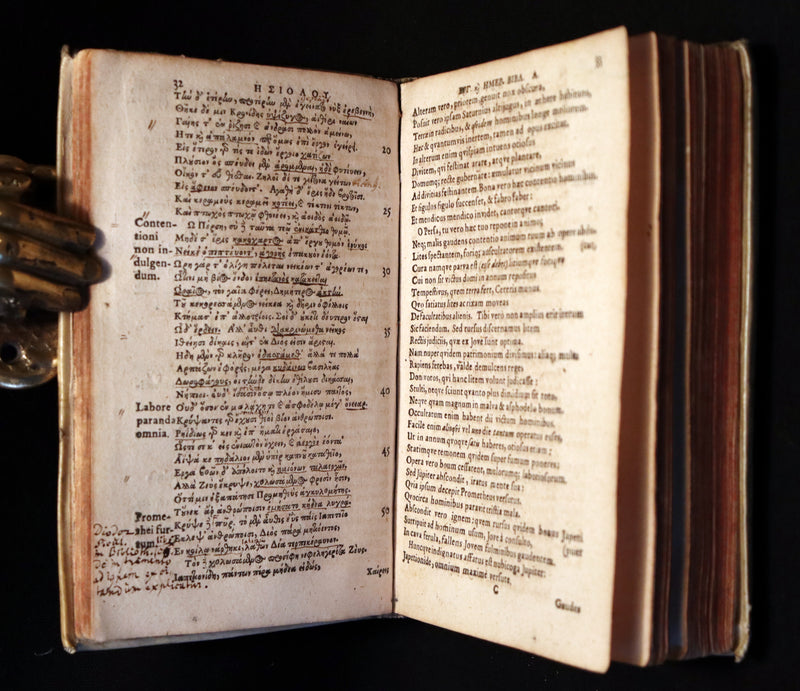 32 ΗΣΙΟΔΟΥ
Τὴν δ' ἑτέρην, προτέρην μὲν ἐγείνατο νὺξ ἐρεβεννὴ,
Θῆκε δέ μιν Κρονίδης ὑψίζυγος, αἰθέρι ναίων
Γαίης τ' ἐν ῥίζῃσι καὶ ἀνδράσι πολλὸν ἀμείνω,
Ἥτε καὶ ἀπάλαμνόν περ ὅμως ἐπὶ ἔργον ἐγείρει. 20
Εἰς ἕτερον γάρ τίς τε ἰδὼν ἔργοιο χατίζων
Πλούσιον ὃς σπεύδει μὲν ἀρόμμεναι, ἠδὲ φυτεύειν,
Οἶκόν τ' εὖ θέσθαι. Ζηλοῖ δέ τε γείτονα γείτων
Εἰς ἄφενον σπεύδοντ'. Ἀγαθὴ δ' ἔρις ἥδε βροτοῖσι.
Καὶ κεραμεὺς κεραμεῖ κοτέει, καὶ τέκτονι τέκτων, 25
Καὶ πτωχὸς πτωχῷ φθονέει, καὶ ἀοιδὸς ἀοιδῷ.
Conten-
tioni
non in-
dulgen-
dum.
Ὦ Πέρση, σὺ δὲ ταῦτα τεῷ ἐνικάτθεο θυμῷ.
Μηδέ σ' ἔρις κακόχαρτος ἀπ' ἔργου θυμὸν ἐρύκοι
Νείκε' ὀπιπτεύοντ', ἀγορῆς ἐπακουὸν ἐόντα.
Ὥρη γάρ τ' ὀλίγη πέλεται νεικέων τ' ἀγορέων τε, 30
ᾯτινι μὴ βίος ἔνδον ἐπηετανὸς κατάκειται
Ὡραῖος, τὸν γαῖα φέρει, Δημήτερος ἀκτήν.
Τοῦ κε κορεσσάμενος νείκεα καὶ δῆριν ὀφέλλοις
Κτήμασ' ἐπ' ἀλλοτρίοις. Σοὶ δ' οὐκέτι δεύτερον ἔσται
Ὧδ' ἔρδειν. Ἀλλ' αὖθι διακρινώμεθα νεῖκος 35
Ἰθείῃσι δίκαις, αἵτ' ἐκ Διός εἰσιν ἄρισται.
Ἤδη μὲν γὰρ κλῆρον ἐδασσάμεθ' ἄλλά τε πολλὰ
Ἁρπάζων ἐφόρεις, μέγα κυδαίνων βασιλῆας
Δωροφάγους, οἳ τήνδε δίκην ἐθέλουσι δικάσσαι,
Νήπιοι· οὐδ' ἴσασιν ὅσῳ πλέον ἥμισυ παντὸς, 40
Labore
paranda
omnia.
Οὐδ' ὅσον ἐν μαλάχῃ τε καὶ ἀσφοδέλῳ μέγ' ὄνειαρ.
Κρύψαντες γὰρ ἔχουσι θεοὶ βίον ἀνθρώποισι.
Ῥηϊδίως γάρ κεν καὶ ἐπ' ἤματι ἐργάσσαιο,
Ὥστέ σε κ' εἰς ἐνιαυτὸν ἔχειν, καὶ ἀεργὸν ἐόντα·
Αἶψά κε πηδάλιον μὲν ὑπὲρ καπνοῦ καταθεῖο, 45
Ἔργα βοῶν δ' ἀπόλοιτο καὶ ἡμιόνων ταλαεργῶν.
Ἀλλὰ Ζεὺς ἔκρυψε, χολωσάμενος φρεσὶν ᾗσιν,
Ὅττι μιν ἐξαπάτησε Προμηθεὺς ἀγκυλομήτης.
Τοὔνεκ' ἄρ' ἀνθρώποισιν ἐμήσατο κήδεα λυγρά.
Prome-
thei fur-
tum.
Κρύψε δὲ πῦρ. τὸ μὲν αὖθις ἐῢς παῖς Ἰαπετοῖο 50
Ἔκλεψ' ἀνθρώποισι, Διὸς πάρα μητιόεντος,
Ἐν κοίλῳ νάρθηκι, λαθὼν Δία τερπικέραυνον.
Τὸν δὲ χολωσάμενος προσέφη νεφεληγερέτα Ζεύς.
Ἰαπετιονίδη, πάντων πέρι μήδεα εἰδὼς,
Χαίρεις
ΕΡΓ. καὶ ΗΜΕΡ. ΒΙΒΛ. Α. 33
Alteram vero, priorem genuit nox obscura,
Posuit vero ipsam Saturnius altijugus, in æthere habitans,
Terræq; in radicibus, & quidem hominibus longe meliorem.
Hæc & quantumvis inertem, tamen ad opus excitat.
In alterum enim quispiam intuens otiosus
Divitem, qui festinat arare, atq; plantare,
Domumq; recte gubernare: æmulatur vicinum vicinus
Ad divitias festinantem. Bona vero hæc contentio hominibus.
Et figulus figulo succenset, & fabro faber:
Et mendicus mendico invidet, cantorque cantori.
O Persa, tu vero hæc tuo repone in animo;
Neq; malis gaudens contentio animum tuum ab opere abducat
Lites spectantem, foriq; auscultatorem existentem.
Cura namque parva est litiumque forique
Cui non sit victus domi in annum repositus
Tempestivus, quem terra fert, Cereris munus.
Quo satiatus lites ac rixam moveas
De facultatibus alienis. Tibi vero non amplius erit iterum
Sic faciendum. Sed rursus discernamus litem
Rectis judiciis, quæ ex Jove sunt optima.
Nam nuper quidem patrimonium divisimus: aliaq; multa
Rapiens ferebas, valde demulcens reges
Donivoros, qui hanc litem volunt judicasse:
Stulti, neqve sciunt qvanto plus dimidium sit toto,
Neqve quam magnum in malva & asphodelo bonum.
Occultatum enim habent dii victum hominibus.
Facile enim alioqui vel uno die tantum operatus esses,
Ut in annum qvoqve satis haberes, otiosus etiam:
Statimqve temonem quidem super fumum poneres:
Opera vero boum cessarent, mulorumq; laboriosorum.
Sed Jupiter abscondit, iratus mente sua:
Qvia ipsum decepit Prometheus versutus.
Qvocirca hominibus paravit tristia mala.
Abscondit vero ignem: qvem rursus qvidem bonus Japeti
(puer
Surripuit ad hominum usum, Jove à consulto,
In cava ferula, fallens Jovem fulminibus gaudentem.
Huncqve indignatus affatus est nubicoga Jupiter:
Japetionide, omnium maximè versute,
C
Gaudes